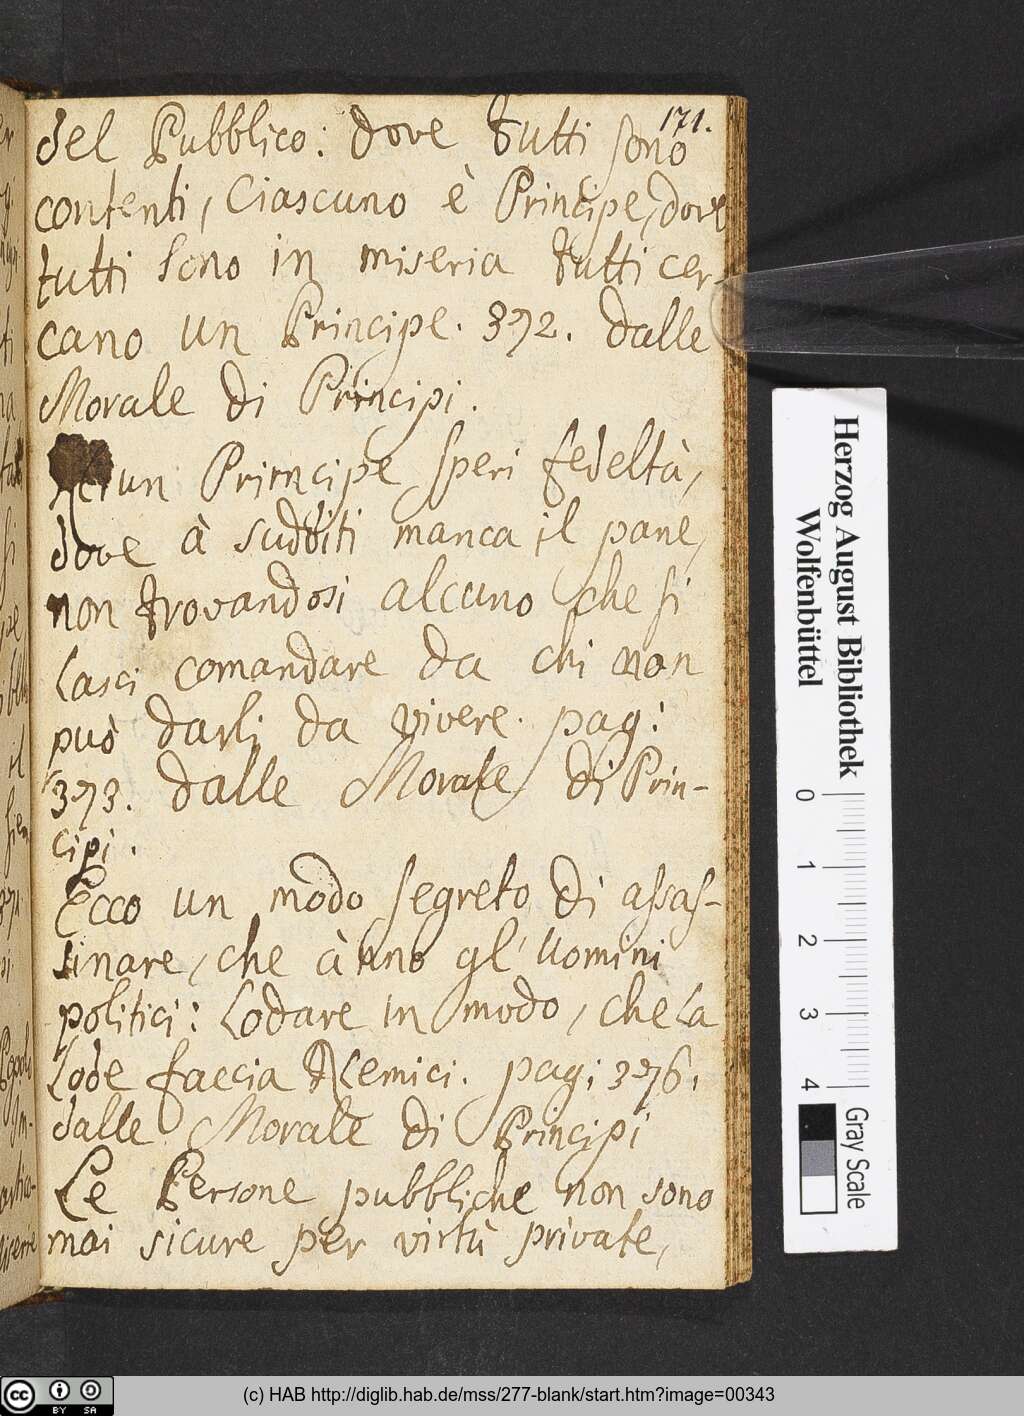 171.
del Pubblico: dove tutti sono
contenti, Ciascuno è Principe, dove
tutti sono in miseria tutti cer-
cano un Principe. 372. dalle
Morale di Principi.
Principe speri fedeltà,
dove à sudditi manca il pane,
non trovandosi alcuno che si
lasci comandare da chi non
può darli da vivere. pag:
373. dalle Morale di Prin-
cipi.
Ecco un modo segreto di assas-
sinare, che ànno gl' Uomini
politici: Lodare in modo, che la
Lode faccia Nemici. pag: 376.
dalle Morale di Principi
Le Persone pubbliche non sono
mai sicure per virtù private,
Herzog August Bibliothek
Wolfenbüttel
0 1 2 3 4
Gray Scale
(c) HAB http://diglib.hab.de/mss/277-blank/start.htm?image=00343
cc BY SA